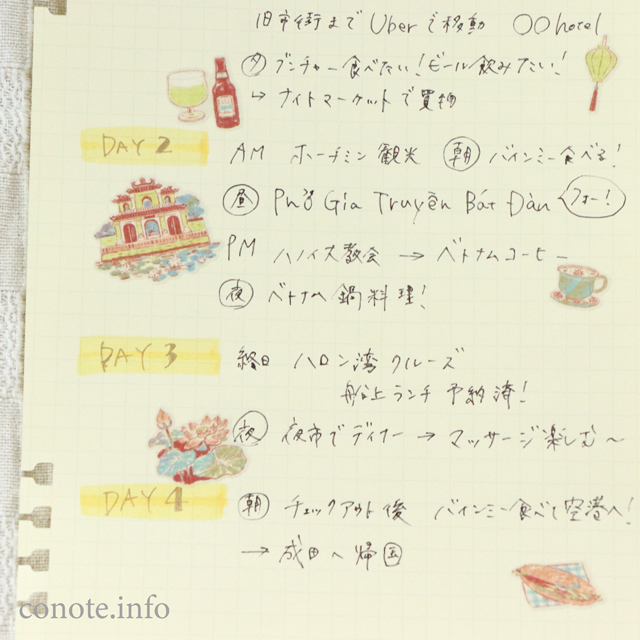 旧市街まで Uberで移動 〇〇hotel
夕 ブンチャー食べたい!ビール飲みたい!
↳ ナイトマーケットで買物
DAY 2 AM ホーチミン観光 朝 バインミー食べる!
昼 Phở Gia Truyền Bát Đàn フォー!
PM ハノイ大教会 → ベトナムコーヒー
夜 ベトナム鍋料理!
DAY 3 終日 ハロン湾クルーズ
船上ランチ 予約済!
夜 夜市でディナー → マッサージ楽しむ〜
DAY 4 朝 チェックアウト後 バインミー食べて空港へ!
→ 成田へ帰国
conote.info